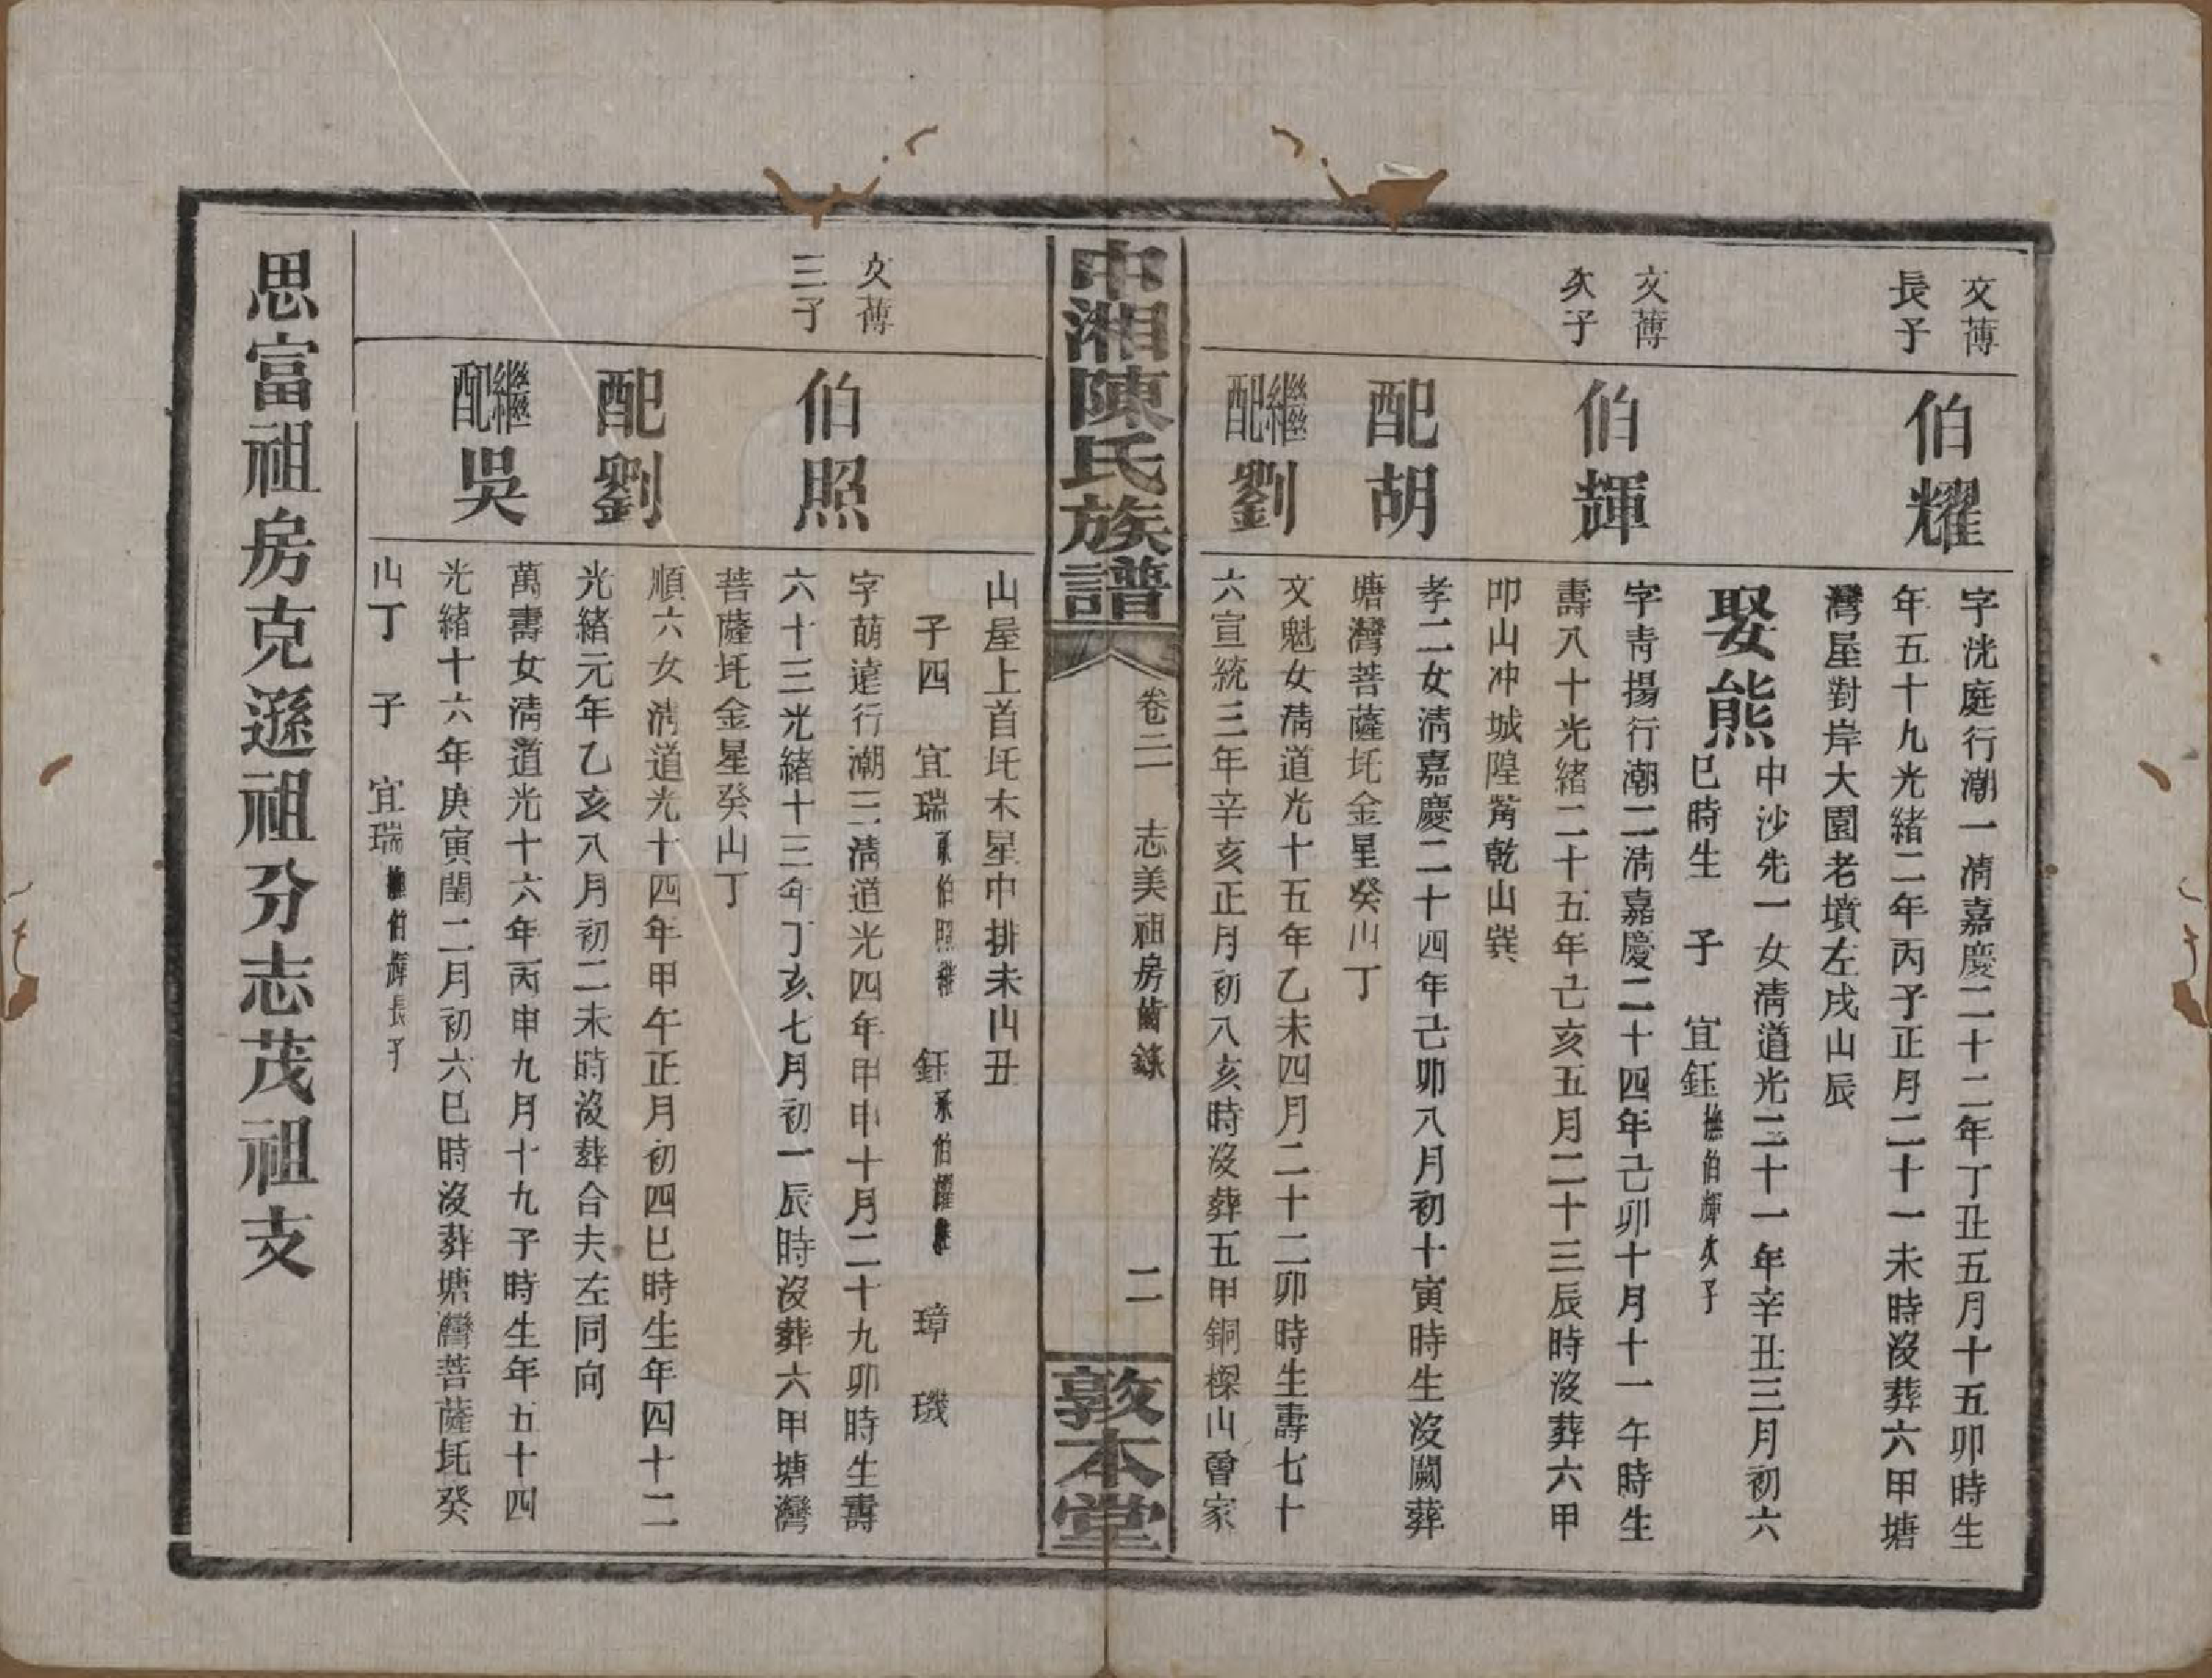 文薄
長子
伯耀
字洸庭行潮一清嘉慶二十二年丁丑五月十五卯時生
年五十九光緒二年丙子正月二十一未時沒葬六甲塘
灣屋對岸大園老墳左戌山辰
娶熊
中沙先一女清道光二十一年辛丑三月初六
巳時生 子 宜鈺撫伯輝次子
文薄
次子
伯輝
字青揚行潮二清嘉慶二十四年己卯十月十一午時生
壽八十光緒二十五年己亥五月二十三辰時沒葬六甲
卭山冲城隍觜乾山巽
配胡
孝二女清嘉慶二十四年己卯八月初十寅時生沒闕葬
塘灣菩薩圫金星癸山丁
繼配劉
文魁女清道光十五年乙未四月二十二卯時生壽七十
六宣統三年辛亥正月初八亥時沒葬五甲銅樑山曾家
中湘陳氏族譜
卷二 志美祖房齒錄
二
敦本堂
山屋上首圫木星中排未山丑
子四 宜瑞承伯照繼 鈺承伯耀繼 璋 璣
文薄
三子
伯照
字萌達行潮三清道光四年甲申十月二十九卯時生壽
六十三光緒十三年丁亥七月初一辰時沒葬六甲塘灣
菩薩圫金星癸山丁
配劉
順六女清道光十四年甲午正月初四巳時生年四十二
光緒元年乙亥八月初二未時沒葬合夫左同向
繼配吳
萬壽女清道光十六年丙申九月十九子時生年五十四
光緒十六年庚寅閏二月初六巳時沒葬塘灣菩薩圫癸
山丁 子 宜瑞撫伯輝長子
思富祖房克遜祖分志茂祖支